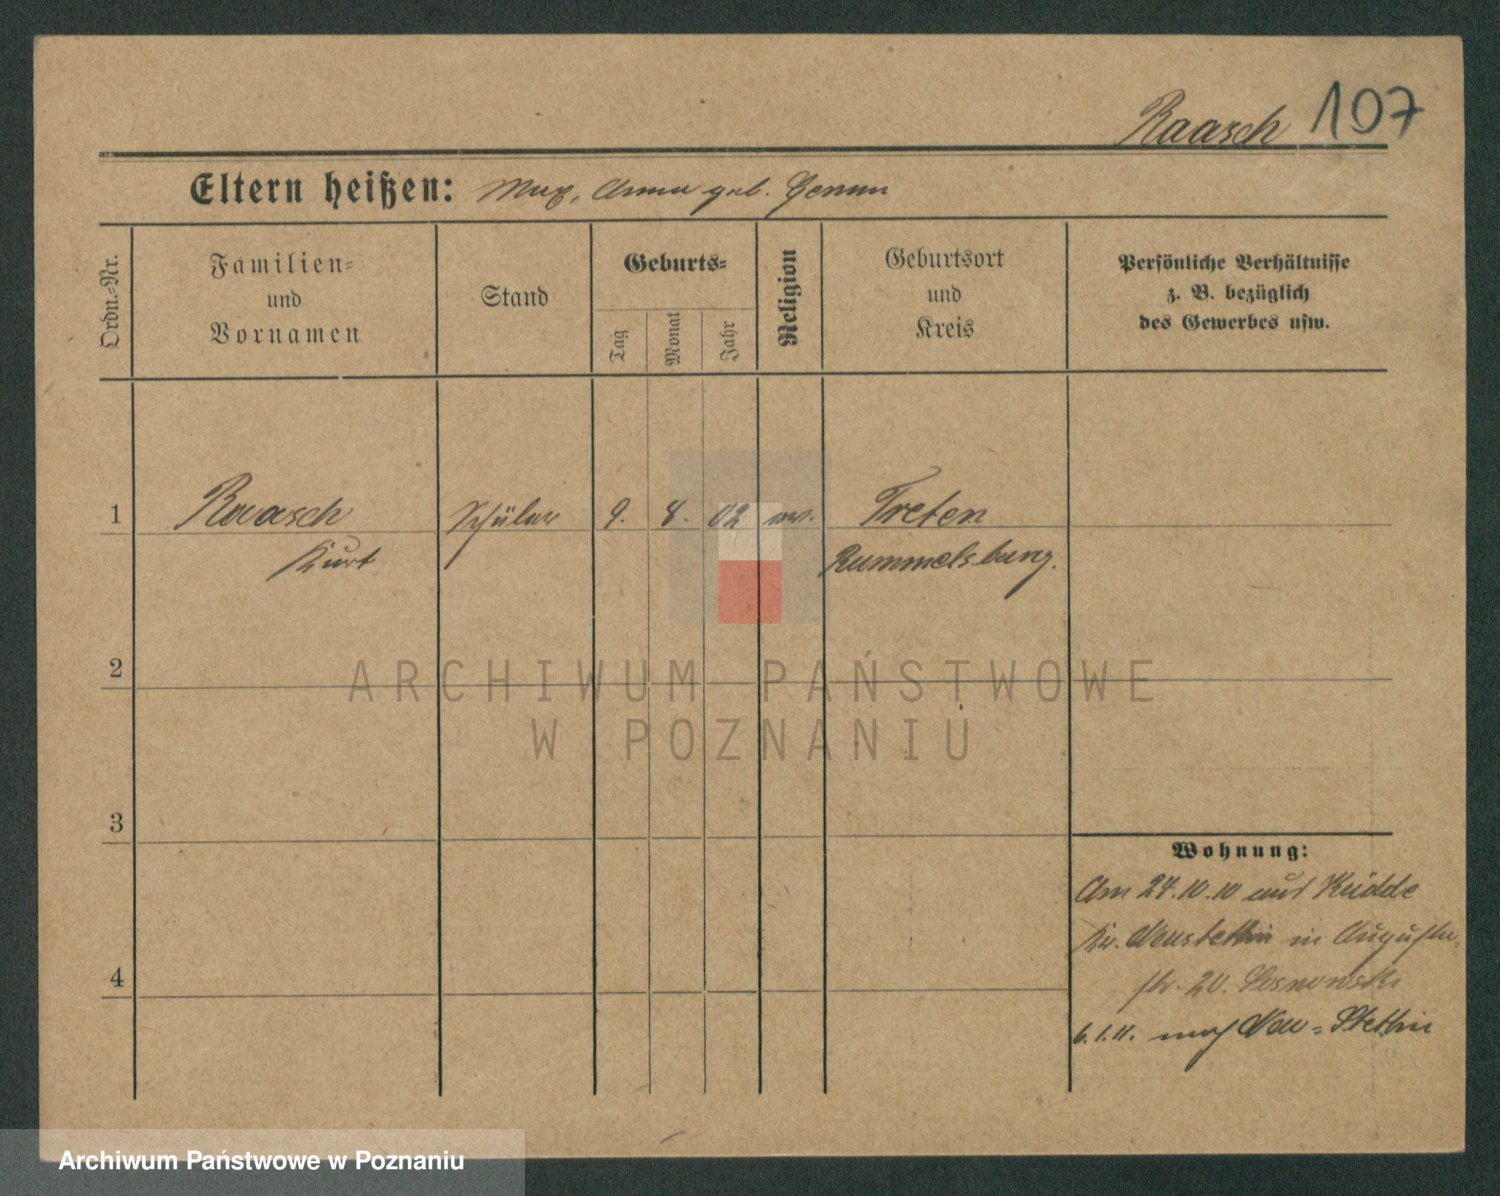 Raasch 107
Eltern heißen: Max, Anna geb. Gemm
Ordn.-Nr.
Familien-
und
Vornamen
Stand
Geburts-
Tag
Monat
Jahr
Religion
Geburtsort
und
Kreis
Persönliche Verhältnisse
z. B. bezüglich
des Gewerbes usw.
1 Raasch Schüler 9. 8. 02 ev. Treten
Kurt Rummelsburg.
2
ARCHIWUM PAŃSTWOWE
W POZNANIU
3
Wohnung:
Am 27.10.10 aus Küdde
Kr. Neustettin in Augusta-
4
str. 20. Sosnowski
6.1.11. nach Neu-Stettin
Archiwum Państwowe w Poznaniu